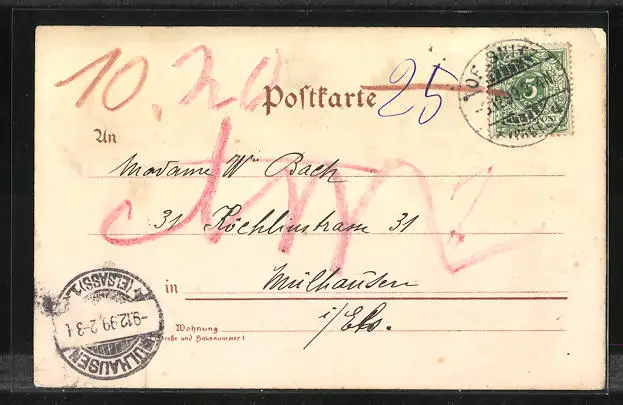 10.20
Postkarte
25
5
POST
An
Madame Wᵉ Bach
31 Köchlinstrasse 31
in
Mülhausen
i/Els.
Wohnung
(Straße und Hausnummer)
MÜLHAUSEN
-9.12.99.2-3
(ELSASS)